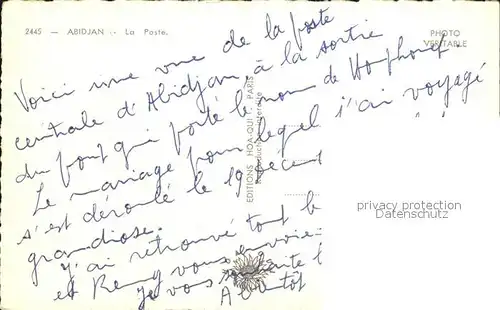 2445 — ABIDJAN - La Poste.
PHOTO
VÉRITABLE
Voici une vue de la poste
centrale d'Abidjan à la sortie
du pont qui porte le nom de Houphouet
Le mariage pour lequel j'ai voyagé
s'est déroulé le 19 décem
grandiose.
J'ai retrouvé tout
et Remy vous envoie
Je vous souhaite
A bientôt
EDITIONS HOA-QUI - PARIS
Reproduction interdite
privacy protection
Datenschutz